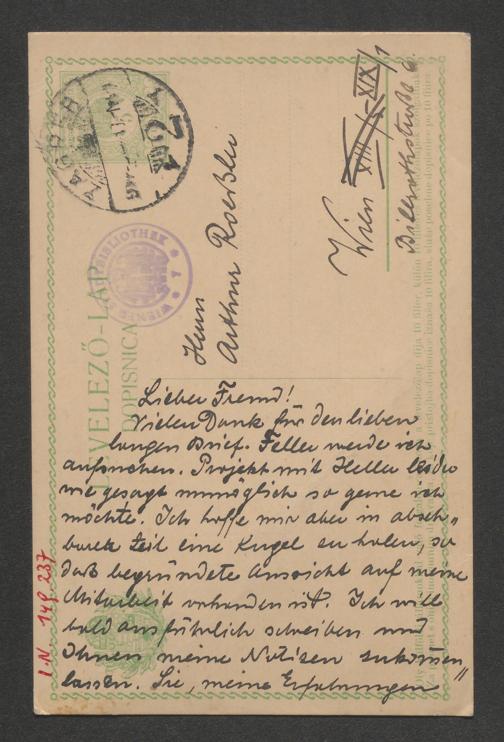 ZAGREB
WIENER BIBLIOTHEK
LEVELEZŐ-LAP
DOPISNICA
Herrn
Arthur Roeßler
Wien XIX/1
Billrothstraße 6.
Lieber Freund!
Vielen Dank für den lieben
langen Brief. Feller werde ich
aufsuchen. Projekt mit Heller leider
wie gesagt unmöglich so gerne ich
möchte. Ich hoffe mir aber in abseh„
barer Zeit eine Kugel zu holen, so
daß begründete Aussicht auf meine
Mitarbeit vorhanden ist. Ich will
bald ausführlich schreiben und
Ihnen meine Notizen zukommen
lassen. Sie, meine Erfahrungen
I.N 149.237